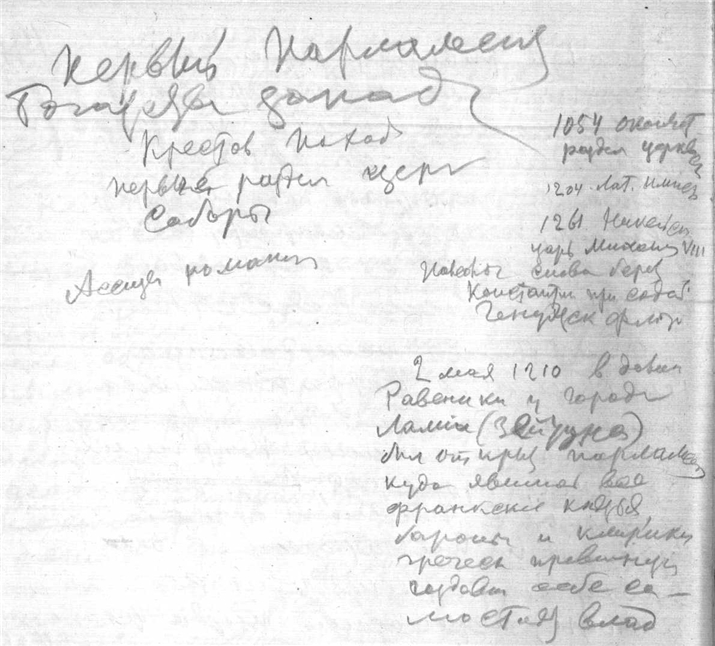 первый парламент
Государи запад
Крестов поход
первые раздел церк
Соборы
Ассизы романи
1054 окончат
раздел церквей
1204 Лат. импер
1261 Никейск
царь Михаил VIII
Палеолог снова берет
Константи при содей
Генуэзск флот
2 мая 1210 в долин
Равеники у города
Ламии (Зейтуна)
был открыт парламент
куда явились все
франкские князья
бароны и клирики
греческ провинции
себе са-
мостоят влад